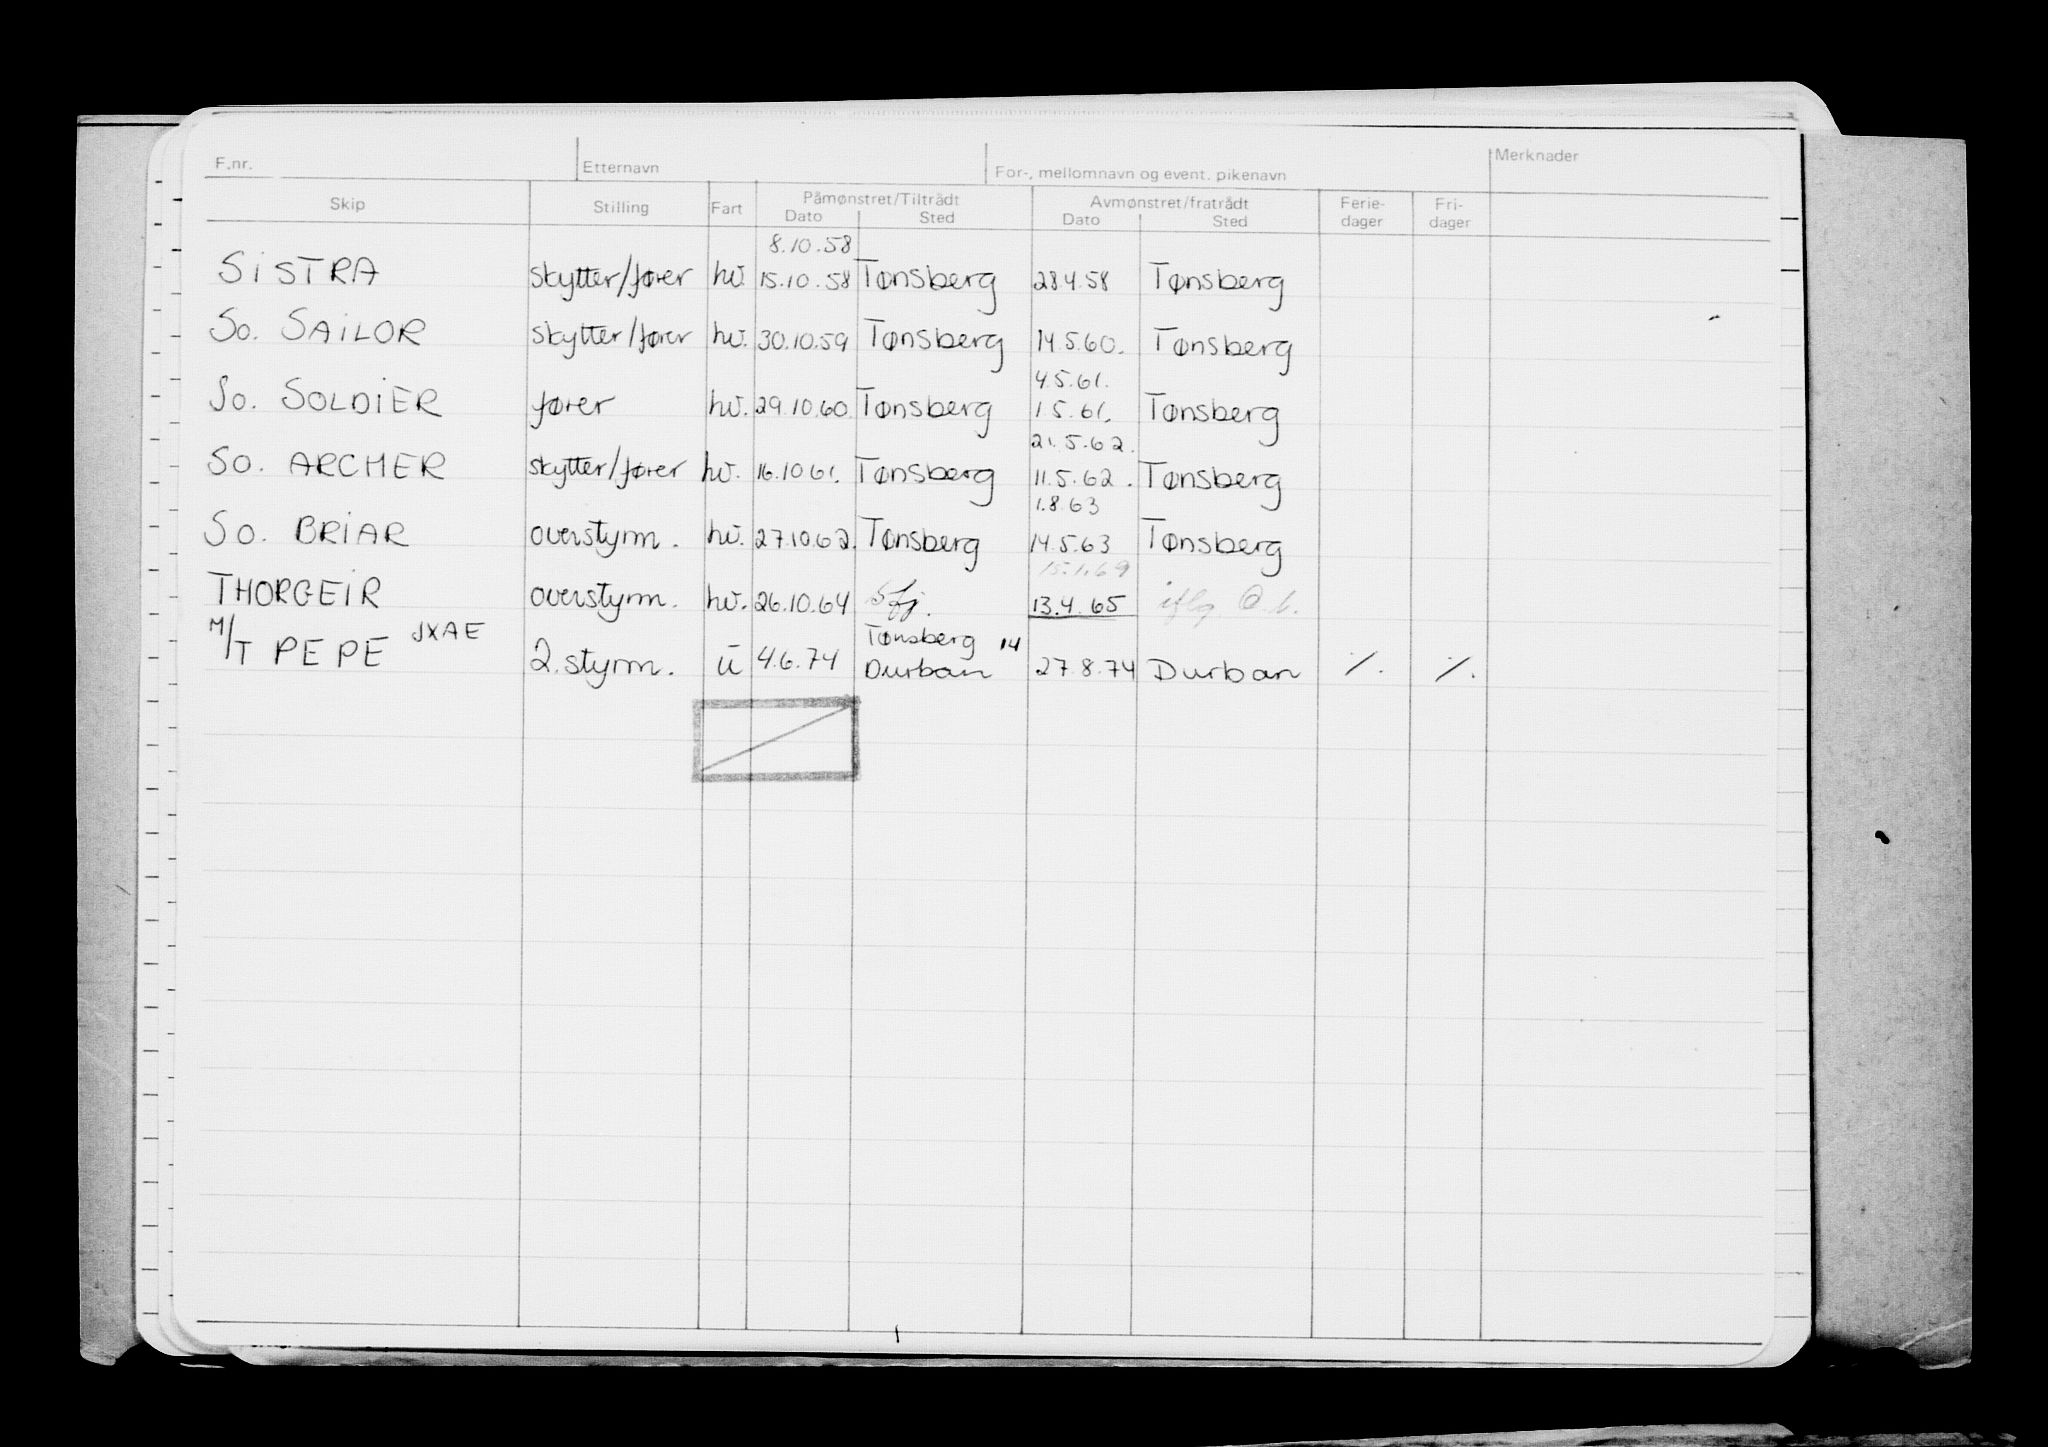 F.nr. Etternavn For-, mellomnavn og event. pikenavn Merknader
Skip Stilling Fart Påmønstret/Tiltrådt Avmønstret/fratrådt Ferie- Fri-
Dato Sted Dato Sted dager dager
8.10.58
SISTRA skytter/fører hv. 15.10.58 Tønsberg 28.4.58 Tønsberg
So. SAILOR skytter/fører hv. 30.10.59 Tønsberg 14.5.60. Tønsberg
4.5.61.
So. SOLDIER fører hv. 29.10.60. Tønsberg 1.5.61. Tønsberg
21.5.62.
So. ARCHER skytter/fører hv. 16.10.61. Tønsberg 11.5.62. Tønsberg
1.8.63
So. BRIAR overstyrm. hv. 27.10.62. Tønsberg 14.5.63 Tønsberg
15.1.69
THORGEIR overstyrm. hv. 26.10.64 Sfj. 13.4.65 iflg.
Tønsberg 14
M/T PEPE JXAE 2. styrm. u 4.6.74 Durban 27.8.74 Durban ٪. ٪.